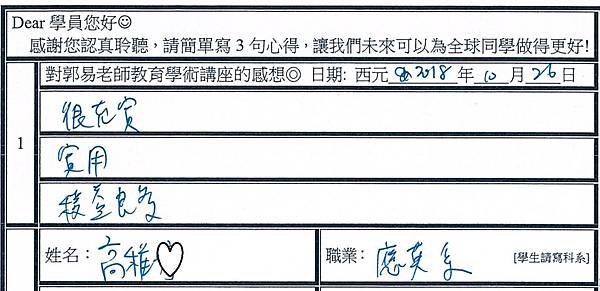 Dear 學員您好☺
感謝您認真聆聽，請簡單寫 3 句心得，讓我們未來可以為全球同學做得更好!
1
對郭易老師教育學術講座的感想◎ 日期: 西元 2018 年 10 月 26 日
很充實
實用
獲益良多
姓名：高雅♡
職業：應英系 [學生請寫科系]